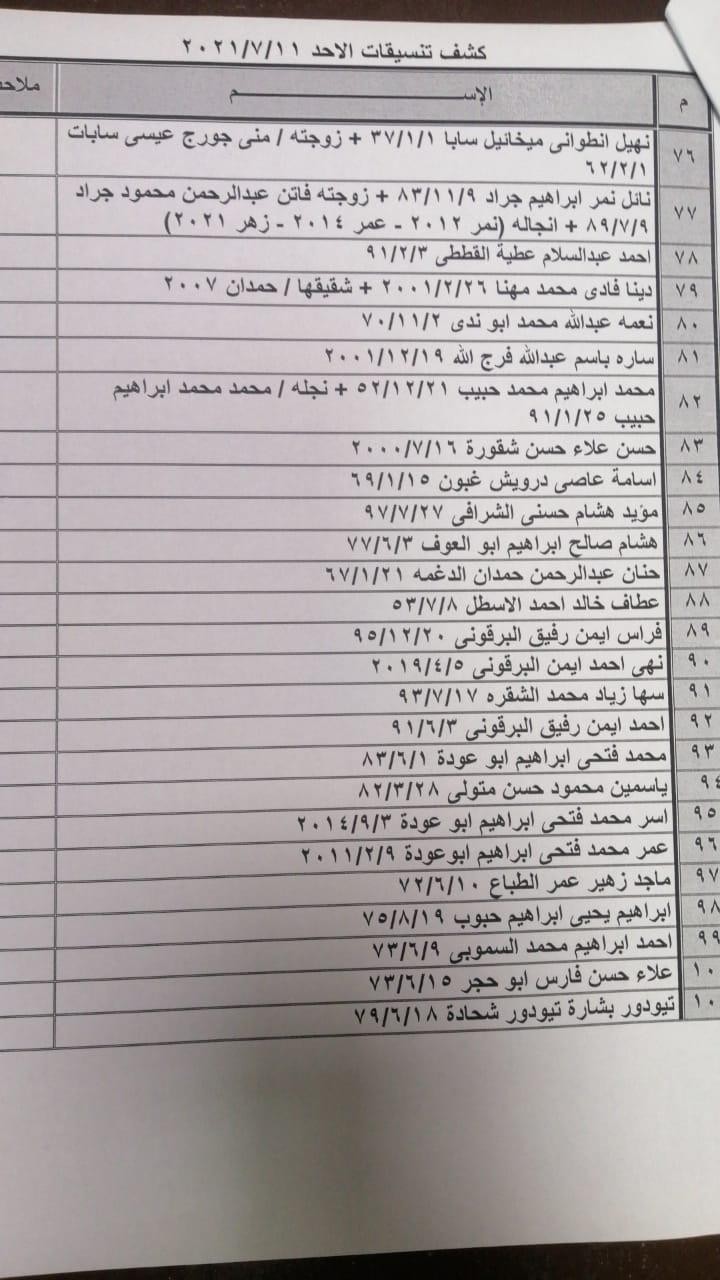 كشف تنسيقات الاحد ٢٠٢١/٧/١١
م الإســـــــــم
٧٦ نهيل انطوانى ميخائيل سابا ٣٧/١/١ + زوجته / منى جورج عيسى سابات
٦٢/٢/١
٧٧ نائل نمر ابراهيم جراد ٨٣/١١/٩ + زوجته فاتن عبدالرحمن محمود جراد
٨٩/٧/٩ + انجاله (نمر ٢٠١٢ - عمر ٢٠١٤ - زهر ٢٠٢١)
٧٨ احمد عبدالسلام عطية القططى ٩١/٢/٣
٧٩ دينا فادى محمد مهنا ٢٠٠١/٢/٢٦ + شقيقها / حمدان ٢٠٠٧
٨٠ نعمه عبدالله محمد ابو ندى ٧٠/١١/٢
٨١ ساره باسم عبدالله فرج الله ٢٠٠١/١٢/١٩
٨٢ محمد ابراهيم محمد حبيب ٥٢/١٢/٢١ + نجله / محمد محمد ابراهيم
حبيب ٩١/١/٢٥
٨٣ حسن علاء حسن شقورة ٢٠٠٠/٧/١٦
٨٤ اسامة عاصى درويش غبون ٦٩/١/١٥
٨٥ مؤيد هشام حسنى الشرافى ٩٧/٧/٢٧
٨٦ هشام صالح ابراهيم ابو العوف ٧٧/٦/٣
٨٧ حنان عبدالرحمن حمدان الدغمه ٦٧/١/٢١
٨٨ عطاف خالد احمد الاسطل ٥٣/٧/٨
٨٩ فراس ايمن رفيق البرقونى ٩٥/١٢/٢٠
٩٠ نهى احمد ايمن البرقونى ٢٠١٩/٤/٥
٩١ سها زياد محمد الشقره ٩٣/٧/١٧
٩٢ احمد ايمن رفيق البرقونى ٩١/٦/٣
٩٣ محمد فتحى ابراهيم ابو عودة ٨٣/٦/١
٩٤ ياسمين محمود حسن متولى ٨٢/٣/٢٨
٩٥ اسر محمد فتحى ابراهيم ابو عودة ٢٠١٤/٩/٣
٩٦ عمر محمد فتحى ابراهيم ابوعودة ٢٠١١/٢/٩
٩٧ ماجد زهير عمر الطباع ٧٢/٦/١٠
٩٨ ابراهيم يحيى ابراهيم حبوب ٧٥/٨/١٩
٩٩ احمد ابراهيم محمد السموبى ٧٣/٦/٩
١٠ علاء حسن فارس ابو حجر ٧٣/٦/١٥
١٠ تيودور بشارة تيودور شحادة ٧٩/٦/١٨